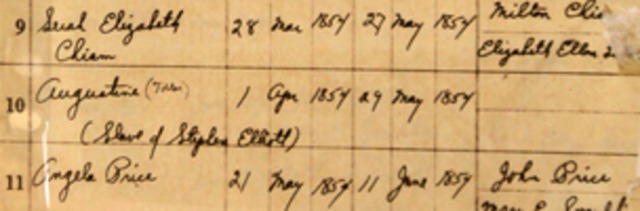 9 Sarah Elizabeth 28 Mar 1854 27 May 1854 Milton
Chism Elizabeth Ellen
10 Augustine 1 Apr 1854 29 May 1854
(Slave of Stephen Elliott)
11 Angela Price 21 May 1854 11 June 1854 John Price